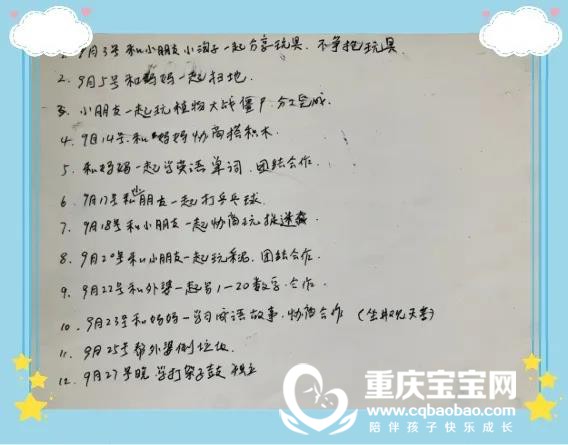 1. 9月3号和小朋友小淘子一起分享玩具.不争抢玩具
2. 9月5号和妈妈一起扫地.
3. 小朋友一起玩植物大战僵尸.分工完成.
4. 9月14号.和妈妈协商搭积木.
5. 和妈妈一起学英语单词.团结合作.
6. 9月17号和小朋友一起打乒乓球.
7. 9月18号和小朋友一起协商玩捉迷藏
8. 9月20号和小朋友一起玩 团结合作.
9. 9月22号和外婆一起写1-20数字.合作.
10. 9月23号和妈妈一学习成语故事.协商合作 (坐井观天等)
11. 9月25号帮外婆倒垃圾
12. 9月27号晚 学打架子鼓 独立
重庆宝宝网
www.cqbaobao.com
陪伴孩子快乐成长